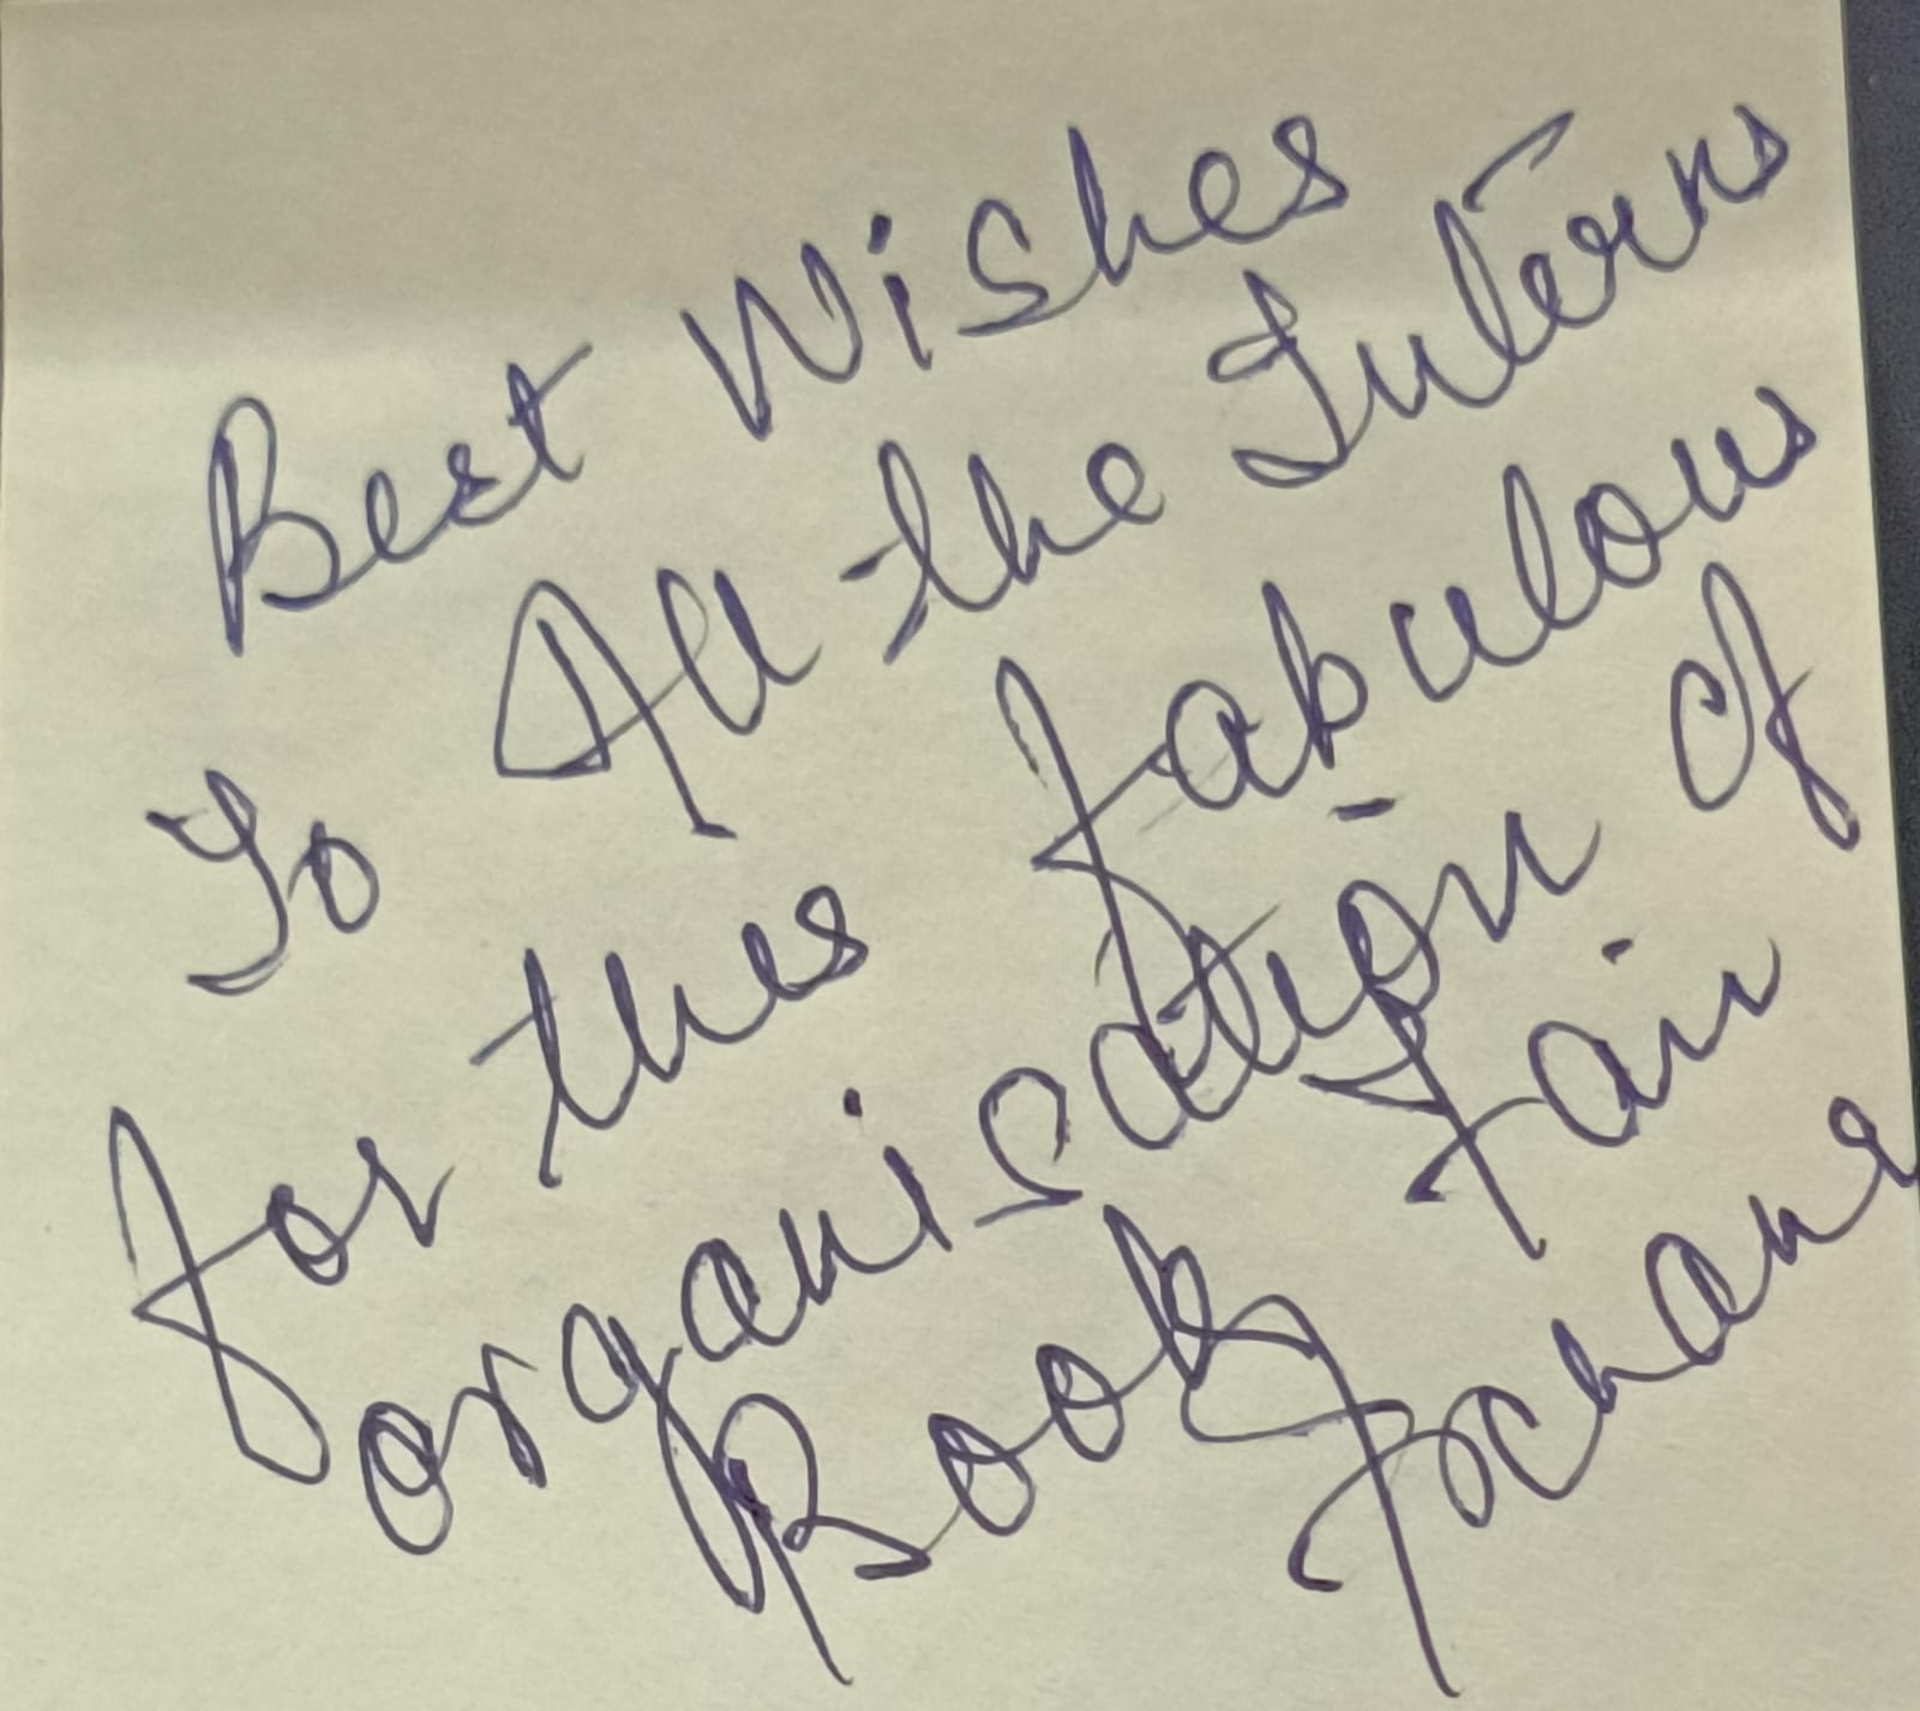 Best Wishes
To All the Interns
for this fabulous
organisation of
Book Fair